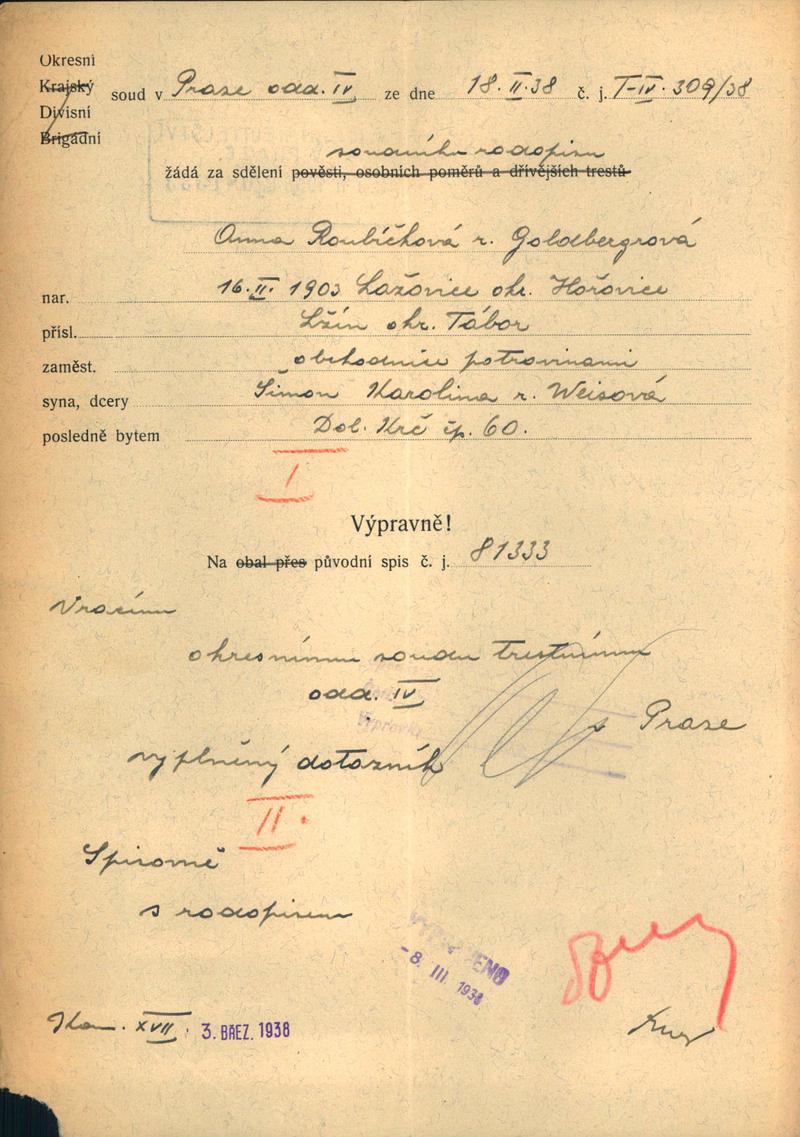 Okresní
Krajský
Divisní
Brigadní
soud v Praze odd. IV ze dne 18.II.38 č. j. T-IV-309/38
soudního rodopisu
žádá za sdělení pověsti, osobních poměrů a dřívějších trestů
Anna Roubíčková r. Goldbergrová
nar. 16.II. 1903 Lažovice okr. Hořovice
přísl. Lžín okr. Tábor
zaměst. obchodnice potravinami
syna, dcery Simon Karolina r. Weisová
posledně bytem Dol. Krč čp. 60.
I
Výpravně!
Na obal přes původní spis č. j. 81333
Vracím
okresnímu soudu trestnímu
odd. IV
v Praze
vyplněný dotazník
II.
Spisovně
s rodopisem
VYPRAVENO
-8. III. 1938
XVII. 3. BŘEZ. 1938